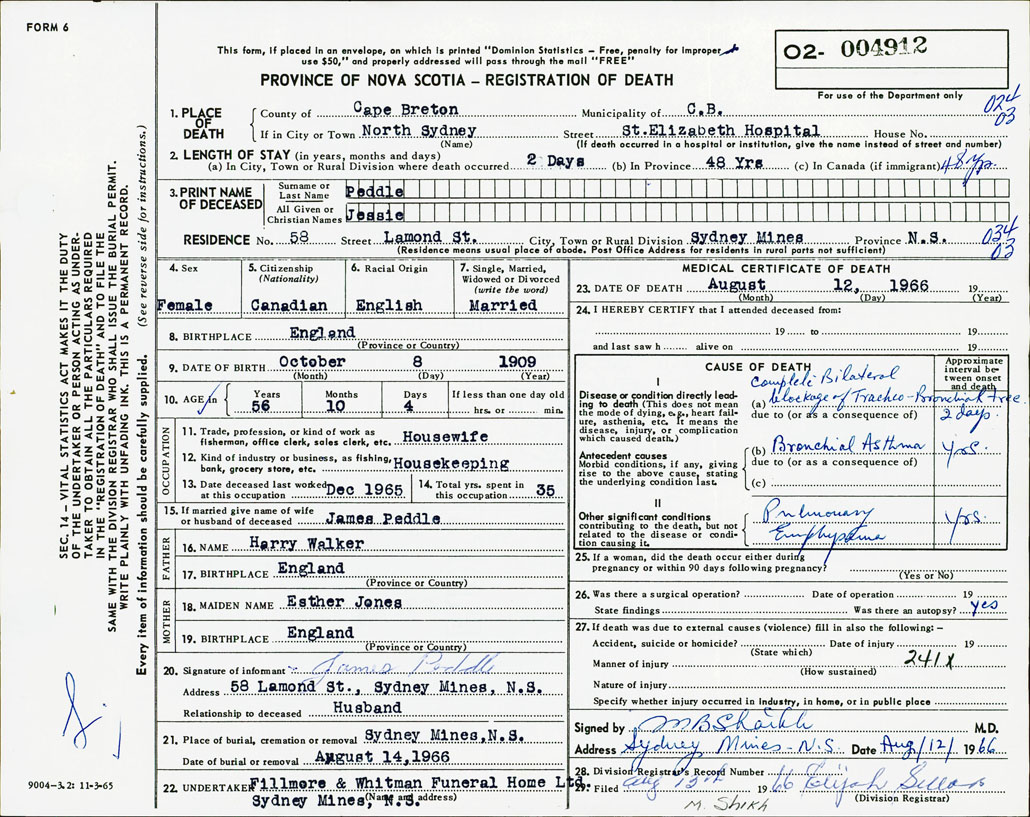 FORM 6
This form, if placed in an envelope, on which is printed "Dominion Statistics – Free, penalty for improper
use $50," and properly addressed will pass through the mail "FREE"
PROVINCE OF NOVA SCOTIA – REGISTRATION OF DEATH
02- 004912
For use of the Department only
024
03
SEC. 14 – VITAL STATISTICS ACT MAKES IT THE DUTY
OF THE UNDERTAKER OR PERSON ACTING AS UNDER-
TAKER TO OBTAIN ALL THE PARTICULARS REQUIRED
IN THE "REGISTRATION OF DEATH" AND TO FILE THE
SAME WITH THE DIVISION REGISTRAR WHO SHALL ISSUE THE BURIAL PERMIT.
WRITE PLAINLY WITH UNFADING INK. THIS IS A PERMANENT RECORD.
Every item of information should be carefully supplied. (See reverse side for instructions.)
1. PLACE OF DEATH
County of Cape Breton Municipality of C.B.
If in City or Town North Sydney Street St.Elizabeth Hospital House No.
(Name) (If death occurred in a hospital or institution, give the name instead of street and number)
2. LENGTH OF STAY (in years, months and days)
(a) In City, Town or Rural Division where death occurred 2 Days (b) In Province 48 Yrs (c) In Canada (if immigrant) 48 yrs.
3. PRINT NAME OF DECEASED
Surname or Last Name Peddle
All Given or Christian Names Jessie
RESIDENCE No. 58 Street Lamond St. City, Town or Rural Division Sydney Mines Province N.S.
034
03
(Residence means usual place of abode. Post Office Address for residents in rural parts not sufficient)
4. Sex Female
5. Citizenship (Nationality) Canadian
6. Racial Origin English
7. Single, Married, Widowed or Divorced (write the word) Married
8. BIRTHPLACE England
(Province or Country)
9. DATE OF BIRTH October 8 1909
(Month) (Day) (Year)
10. AGE in Years 56 Months 10 Days 4 If less than one day old hrs. or min.
OCCUPATION
11. Trade, profession, or kind of work as fisherman, office clerk, sales clerk, etc. Housewife
12. Kind of industry or business, as fishing, bank, grocery store, etc. Housekeeping
13. Date deceased last worked at this occupation Dec 1965
14. Total yrs. spent in this occupation 35
15. If married give name of wife or husband of deceased James Peddle
FATHER
16. NAME Harry Walker
17. BIRTHPLACE England
(Province or Country)
MOTHER
18. MAIDEN NAME Esther Jones
19. BIRTHPLACE England
(Province or Country)
20. Signature of informant James Peddle
Address 58 Lamond St., Sydney Mines, N.S.
Relationship to deceased Husband
21. Place of burial, cremation or removal Sydney Mines,N.S.
Date of burial or removal August 14,1966
22. UNDERTAKER Fillmore & Whitman Funeral Home Ltd.
Sydney Mines, N.S.
(Name and address)
MEDICAL CERTIFICATE OF DEATH
23. DATE OF DEATH August 12, 1966 19
(Month) (Day) (Year)
24. I HEREBY CERTIFY that I attended deceased from:
19 to 19
and last saw h alive on 19
CAUSE OF DEATH
Approximate interval between onset and death
I
Disease or condition directly leading to death (This does not mean the mode of dying, e.g., heart failure, asthenia, etc. It means the disease, injury, or complication which caused death.)
Complete Bilateral
(a) blockage of Tracheo-Bronchial tree.
due to (or as a consequence of) 2 days
Antecedent causes
Morbid conditions, if any, giving rise to the above cause, stating the underlying condition last.
(b) Bronchial Asthma yrs.
due to (or as a consequence of)
(c)
II
Other significant conditions contributing to the death, but not related to the disease or condition causing it.
Pulmonary
Emphysema
yrs.
25. If a woman, did the death occur either during
pregnancy or within 90 days following pregnancy?
(Yes or No)
26. Was there a surgical operation? Date of operation 19
State findings Was there an autopsy? yes
27. If death was due to external causes (violence) fill in also the following: –
Accident, suicide or homicide? Date of injury 19
(State which)
Manner of injury 241X
(How sustained)
Nature of injury
Specify whether injury occurred in industry, in home, or in public place
Signed by M B Shaikh M.D.
Address Sydney Mines - N.S. Date Aug/12/ 1966
28. Division Registrar's Record Number
29. Filed Aug 12th 1966 Elijah
(Division Registrar)
M. Shikh
9004-3.2: 11-3-65